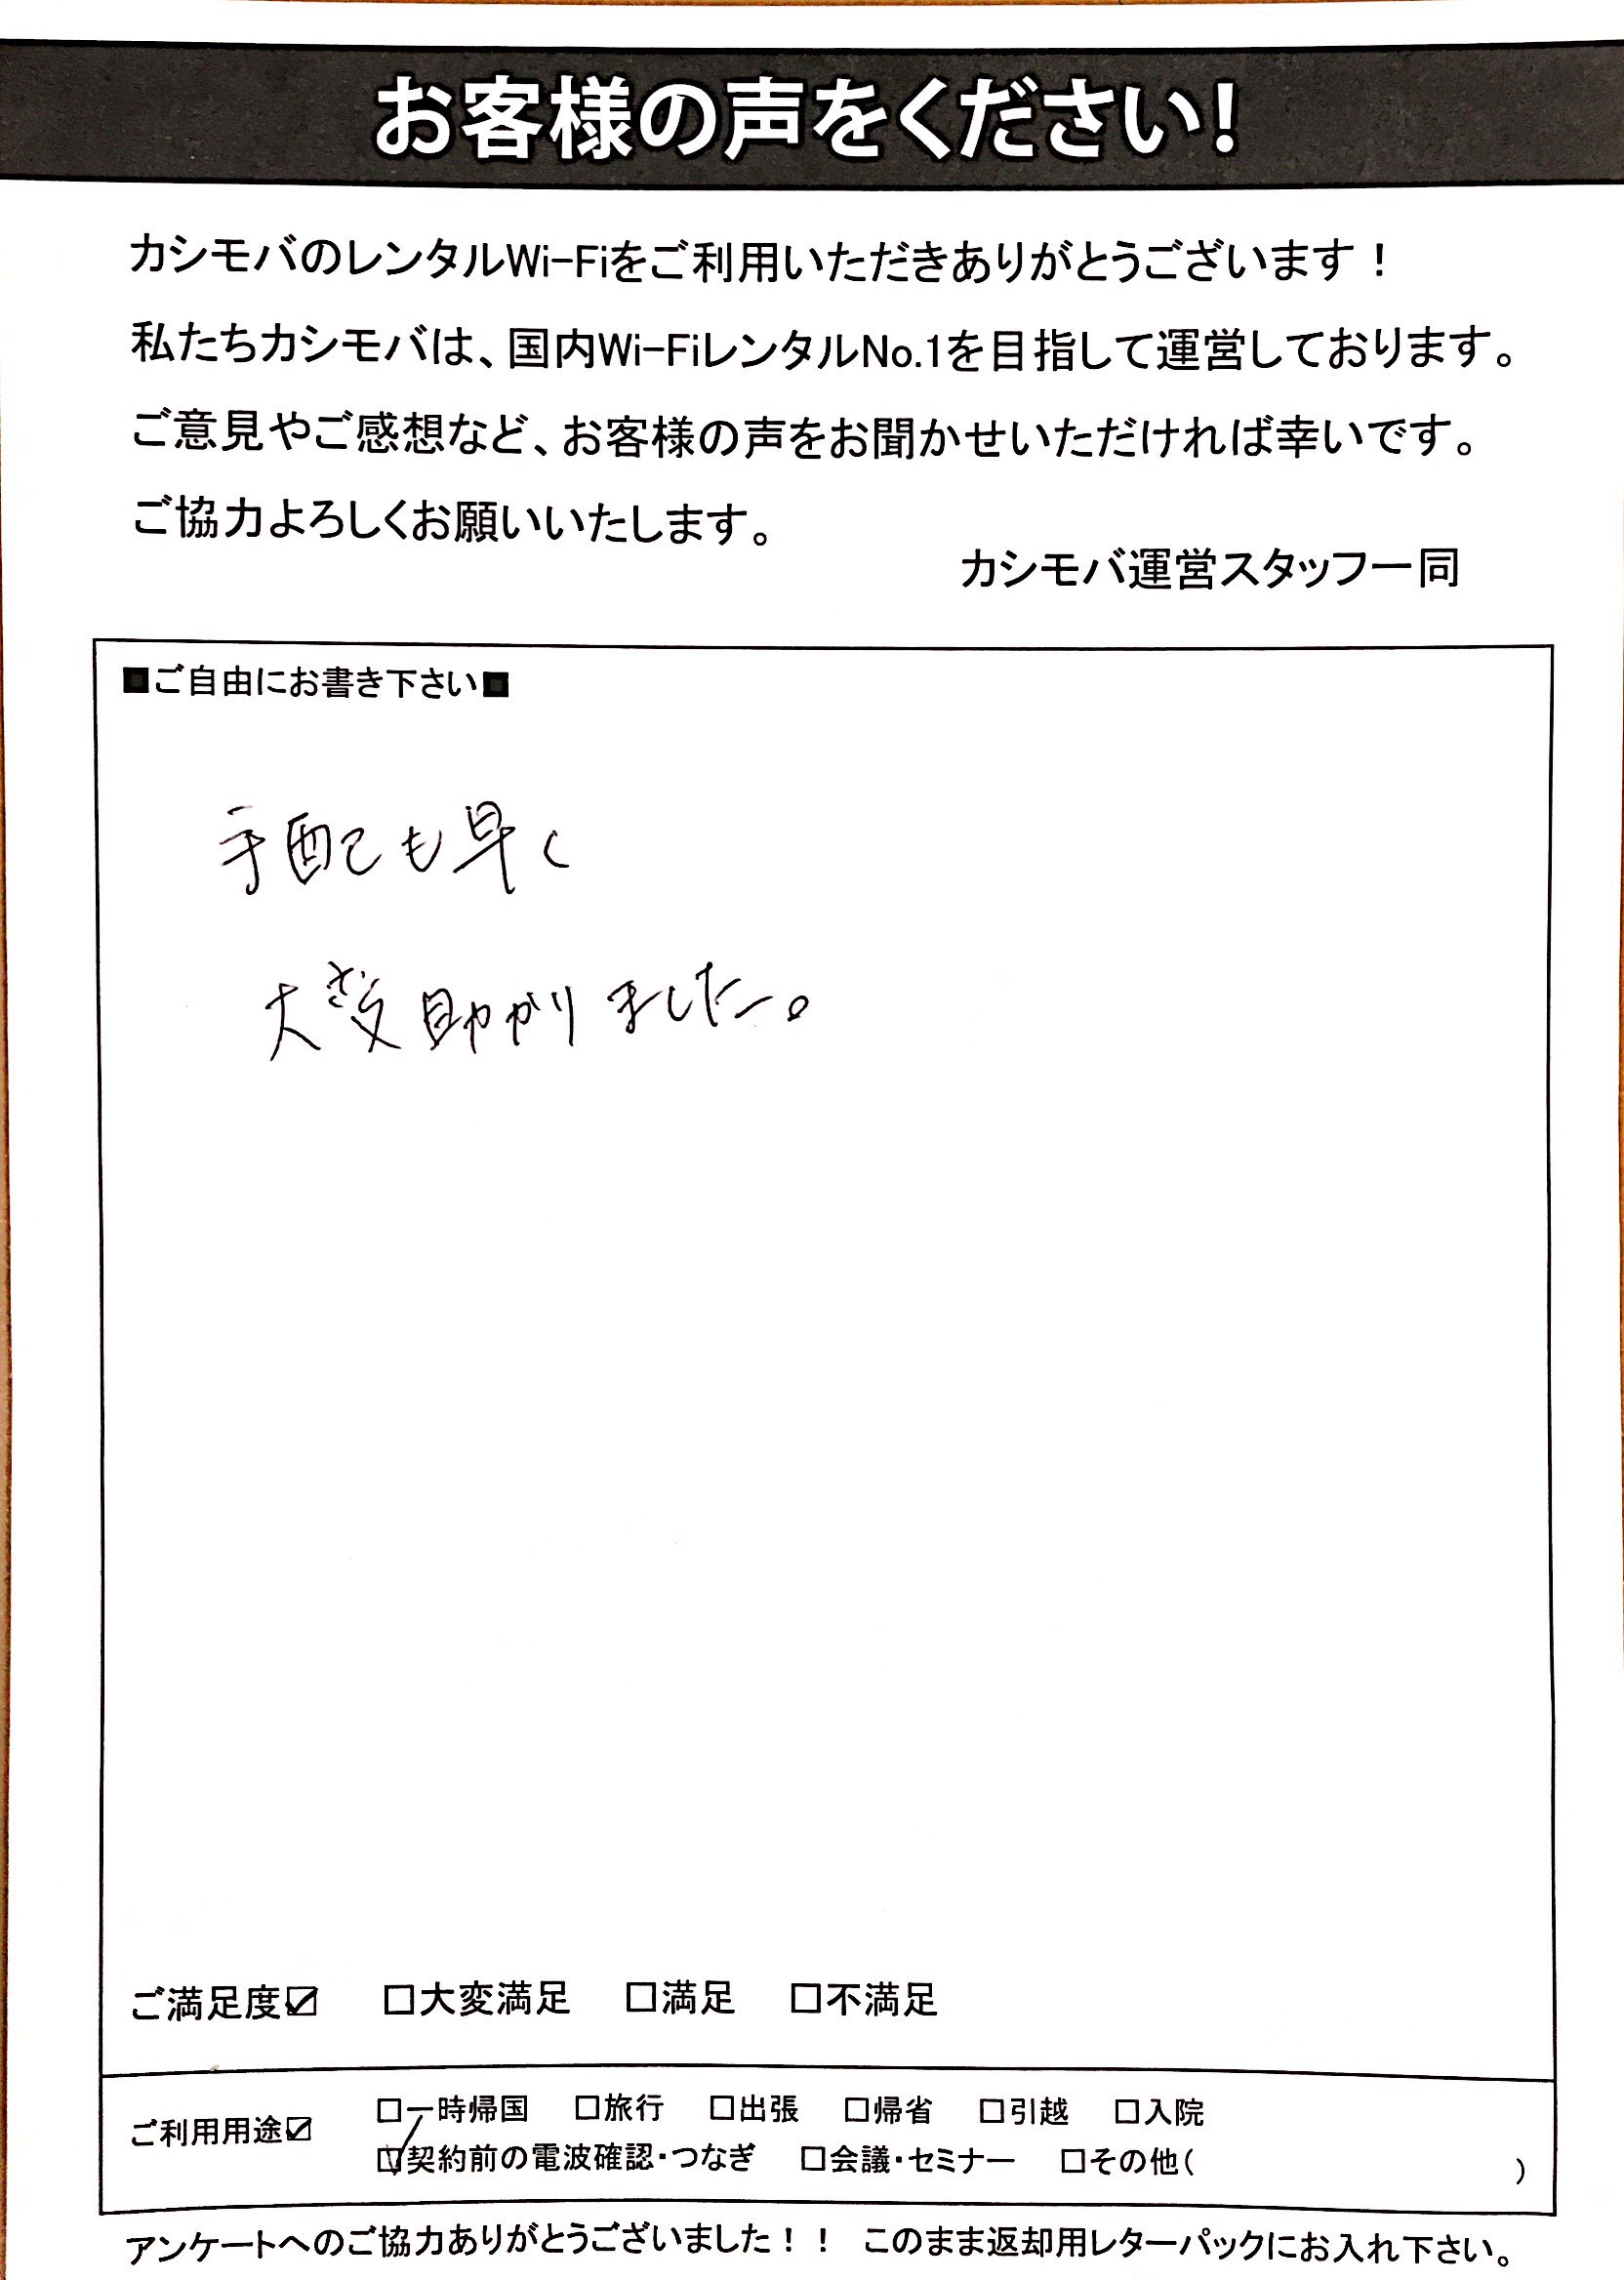 お客様の声をください!
カシモバのレンタルWi-Fiをご利用いただきありがとうございます！
私たちカシモバは、国内Wi-FiレンタルNo.1を目指して運営しております。
ご意見やご感想など、お客様の声をお聞かせいただければ幸いです。
ご協力よろしくお願いいたします。
カシモバ運営スタッフ一同
■ご自由にお書き下さい■
手配も早く
大変助かりました。
ご満足度☑ □大変満足 □満足 □不満足
ご利用用途☑ □一時帰国 □旅行 □出張 □帰省 □引越 □入院
☑契約前の電波確認・つなぎ □会議・セミナー □その他( )
アンケートへのご協力ありがとうございました！！ このまま返却用レターパックにお入れ下さい。